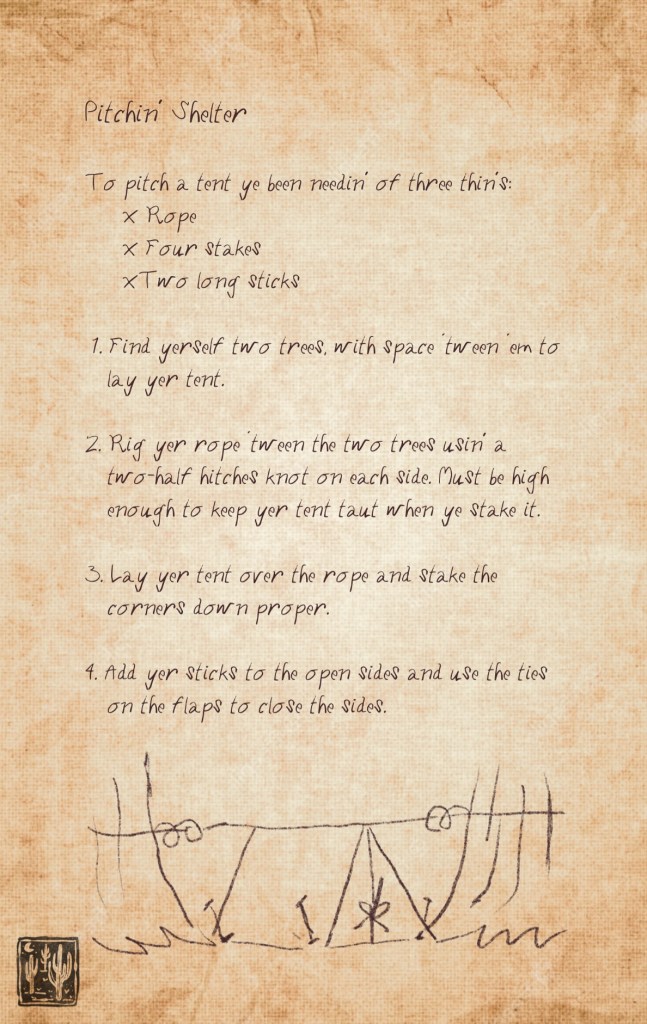 Pitchin' Shelter
To pitch a tent ye been needin' of three thin's:
x Rope
x Four stakes
x Two long sticks
1. Find yerself two trees, with space 'tween 'em to
lay yer tent.
2. Rig yer rope 'tween the two trees usin' a
two-half hitches knot on each side. Must be high
enough to keep yer tent taut when ye stake it.
3. Lay yer tent over the rope and stake the
corners down proper.
4. Add yer sticks to the open sides and use the ties
on the flaps to close the sides.